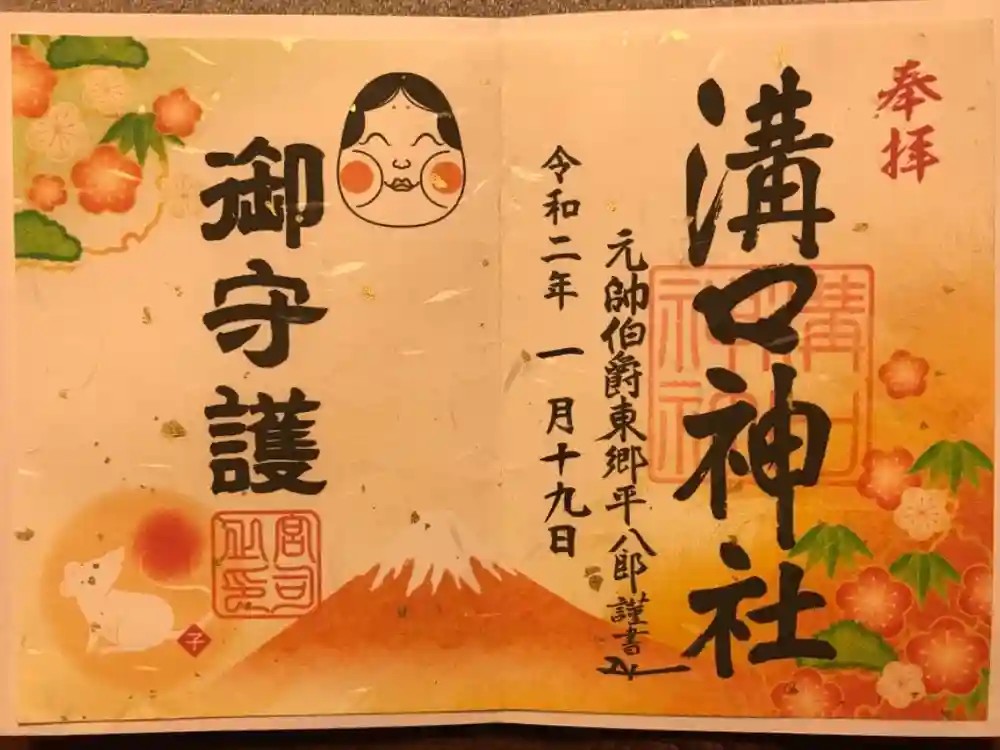 奉拝
溝口神社
元帥伯爵東郷平八郎謹書
令和二年一月十九日
御守護
宮司之印
子